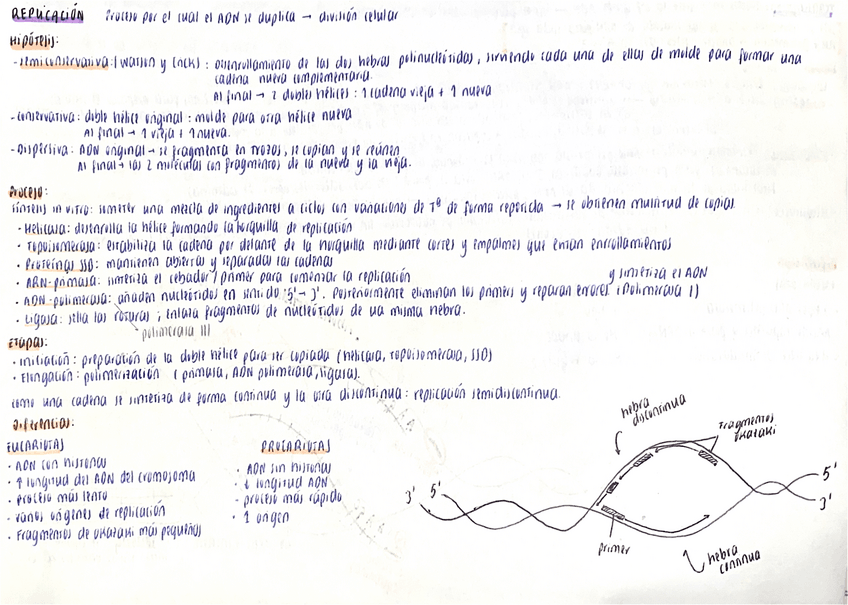 REPLICACIÓN Proceso por el cual el ADN se duplica → división celular
Hipótesis:
- semiconservativa: (Watson y Crick) : desenrollamiento de las dos hebras polinucleótidas, sirviendo cada una de ellas de molde para formar una
cadena nueva complementaria.
Al final → 2 dobles hélices : 1 cadena vieja + 1 nueva
- conservativa : doble hélice original : molde para otra hélice nueva
Al final → 1 vieja + 1 nueva.
- Dispersiva : ADN original → se fragmenta en trozos, se copian y se reúnen
Al final → las 2 moléculas con fragmentos de la nueva y la vieja.
Proceso:
síntesis in vitro: someter una mezcla de ingredientes a ciclos con variaciones de Tª de forma repetida → se obtienen multitud de copias.
· Helicasa: desenrolla la hélice formando la horquilla de replicación
· Topoisomerasa: estabiliza la cadena por delante de la horquilla mediante cortes y empalmes que evitan enrollamientos
· Proteínas SSB: mantienen abiertas y separadas las cadenas
· ARN-primasa: sintetiza el cebador / primer para comenzar la replicación
y sintetiza el ADN
· ADN-polimerasa: añaden nucleótidos en sentido 5' → 3'. Posteriormente eliminan los primers y reparan errores. (Polimerasa I)
· Ligasa: sella las roturas ; enlaza fragmentos de nucleótidos de una misma hebra.
polimerasa III
Etapas:
· Iniciación : preparación de la doble hélice para ser copiada (helicasa, topoisomerasa, SSB)
· Elongación : polimerización (primasa, ADN polimerasa, ligasa).
como una cadena se sintetiza de forma continua y la otra discontinua : replicación semidiscontinua.
Diferencias:
EUCARIOTAS
· ADN con histonas
· ↑ longitud del ADN del cromosoma
· proceso más lento
· varios orígenes de replicación
· Fragmentos de Okazaki más pequeños
PROCARIOTAS
· ADN sin histonas
· ↓ longitud ADN
· proceso más rápido
· 1 origen
hebra
discontinua
Fragmentos
Okazaki
3' 5'
5'
3'
primer
hebra
continua